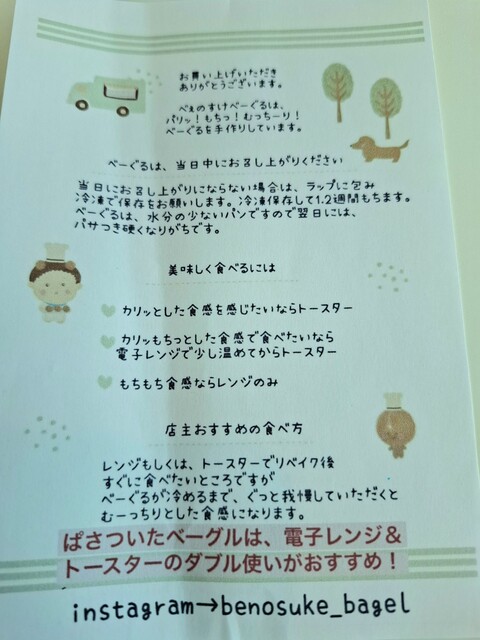 お買い上げいただき
ありがとうございます。
べぇのすけべーぐるは、
パリッ！もちっ！むっちーり！
べーぐるを手作りしています。
べーぐるは、当日中にお召し上がりください
当日にお召し上がりにならない場合は、ラップに包み
冷凍で保存をお願いします。冷凍保存して1.2週間もちます。
べーぐるは、水分の少ないパンですので翌日には、
パサつき硬くなりがちです。
美味しく食べるには
カリッとした食感を感じたいならトースター
カリッもちっとした食感で食べたいなら
電子レンジで少し温めてからトースター
もちもち食感ならレンジのみ
店主おすすめの食べ方
レンジもしくは、トースターでリベイク後
すぐに食べたいところですが
べーぐるが冷めるまで、ぐっと我慢していただくと
むーっちりとした食感になります。
ぱさついたベーグルは、電子レンジ＆
トースターのダブル使いがおすすめ！
instagram→benosuke_bagel